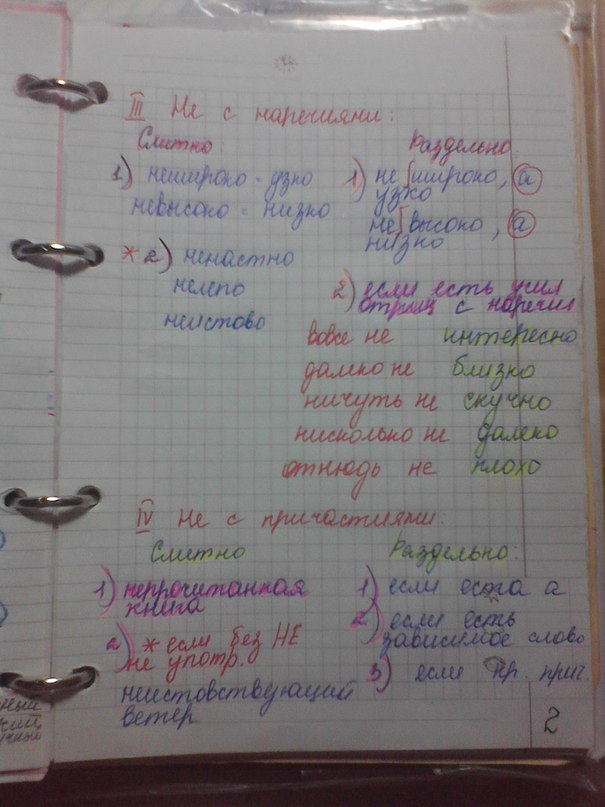 III Не с наречиями:
Слитно:
Раздельно:
1) нешироко - узко
невысоко - низко
* 2) ненастно
нелепо
неистово
1) не широко, а
узко
не высоко, а
низко
2) если есть усил
отриц с наречия
вовсе не интересно
далеко не близко
ничуть не скучно
нисколько не далеко
отнюдь не плохо
IV Не с причастиями:
Слитно
Раздельно:
1) непрочитанная
книга
2) * если без НЕ
не употр.
неистовствующий
ветер
1) если есть а
2) если есть
зависимое слово
3) если кр. прич.
2